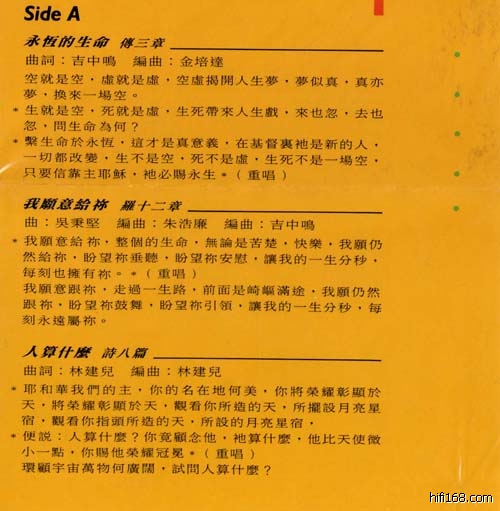 Side A
永恆的生命 傳三章
曲詞：吉中鳴 編曲：金培達
空就是空，虛就是虛，空虛揭開人生夢，夢似真，真亦
夢，換來一場空。
*生就是空，死就是虛，生死帶來人生戲，來也忽，去也
忽，問生命為何？
*繫生命於永恆，這才是真意義，在基督裏祂是新的人，
一切都改變，生不是空，死不是虛，生死不是一場空，
只要信靠主耶穌，祂必賜永生。*（重唱）
我願意給祢 羅十二章
曲：吳秉堅 編曲：朱浩廉 編曲：吉中鳴
*我願意給祢，整個的生命，無論是苦楚，快樂，我願仍
然給祢，盼望祢垂聽，盼望祢安慰，讓我的一生分秒，
每刻也擁有祢。*（重唱）
我願意跟祢，走過一生路，前面是崎嶇滿途，我願仍然
跟祢，盼望祢鼓舞，盼望祢引領，讓我的一生分秒，每
刻永遠屬祢。
人算什麼 詩八篇
曲詞：林建兒 編曲：林建兒
*耶和華我們的主，你的名在地何美，你將榮耀彰顯於
天，將榮耀彰顯於天，觀看你所造的天，所擺設月亮星
宿，觀看你指頭所造的天，所設的月亮星宿，
*便説：人算什麼？你竟顧念他，祂算什麼，他比天使微
小一點，你賜他榮耀冠冕。*（重唱）
環顧宇宙萬物何廣闊，試問人算什麼？
hifi168.com